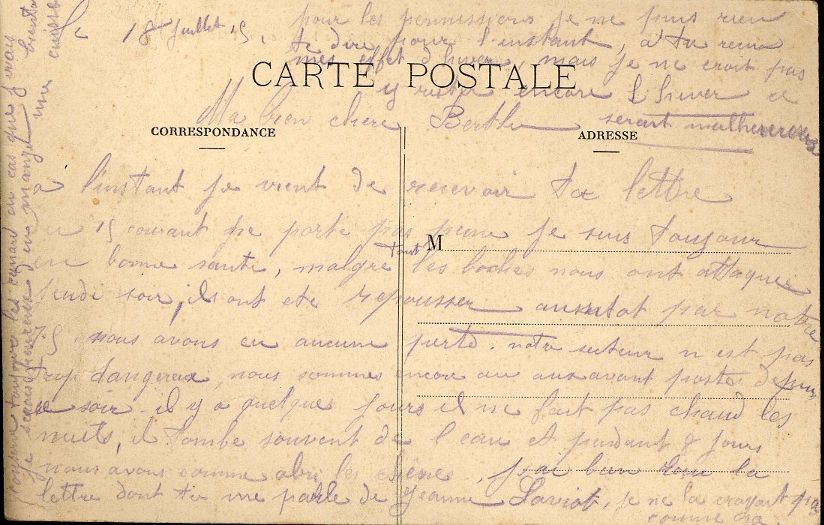 Le 18 juillet 15.
CARTE POSTALE
CORRESPONDANCE
ADRESSE
M
Ma bien chère Berthe
à l'instant je vient de recevoir ta lettre
du 15 courant ne porte pas peine je suis toujour
en bonne sante, malgre tout les boches nous ont attaque
jeudi soir, ils ont ete repousser aussitot par notre
75 nous avons eu aucune perte. notre secteur n est pas
trop dangereux, nous sommes encore au avant poste depuis
ce soir. il y a quelques jours il ne fait pas chaud les
nuits, il tombe souvent de l eau et pendant 8 jours
nous avons comme abri les chênes, j'ai bien la
lettre dont tu me parle de Jeanne je ne la croyait
comme ça
pour les permissions je ne puis rien
te dire pour l'instant, a tu
mes effet d'hiver, mais je ne croit pas
y rester encore l hiver ce
serait malheureux
toujours les au cas que j'irais
je serais heureux d'en manger une